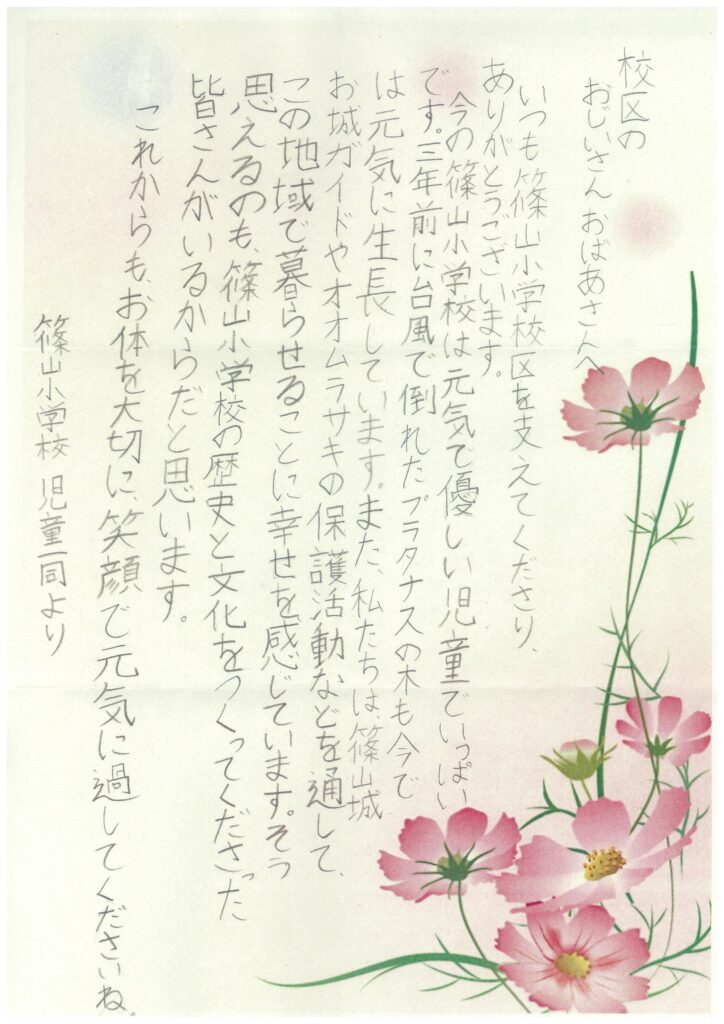 校区の
おじいさん おばあさんへ
いつも篠山小学校区を支えてくださり、
ありがとうございます。
今の篠山小学校は元気で優しい児童でいっぱい
です。三年前に台風で倒れたプラタナスの木も今で
は元気に生長しています。また、私たちは、篠山城
お城ガイドやオオムラサキの保護活動などを通して、
この地域で暮らせることに幸せを感じています。そう
思えるのも、篠山小学校の歴史と文化をつくってくださった
皆さんがいるからだと思います。
これからも、お体を大切に、笑顔で元気に過してくださいね。
篠山小学校 児童一同より